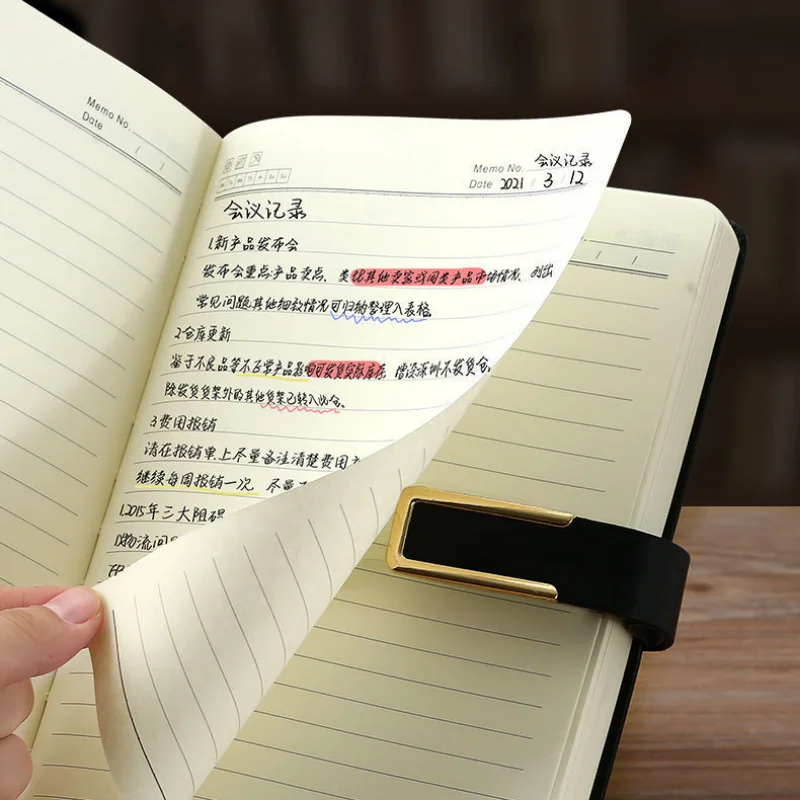 Memo No.
Date / /
Memo No. 会议记录
Date 2021 / 3 / 12
会议记录
1.新产品发布会
发布会重点产品卖点、类比其他卖家或同类产品市场情况、列出
常见问题其他细致情况可归纳整理入表格
2.仓库更新
鉴于不良品等不正常产品影响可发货实际库存,增设深圳不发货仓,
除发货货架外的其他货架已转入此仓、
3.费用报销
请在报销单上尽量备注清楚费用
继续每周报销一次 尽量
1.2015年三大阻碍
物流问